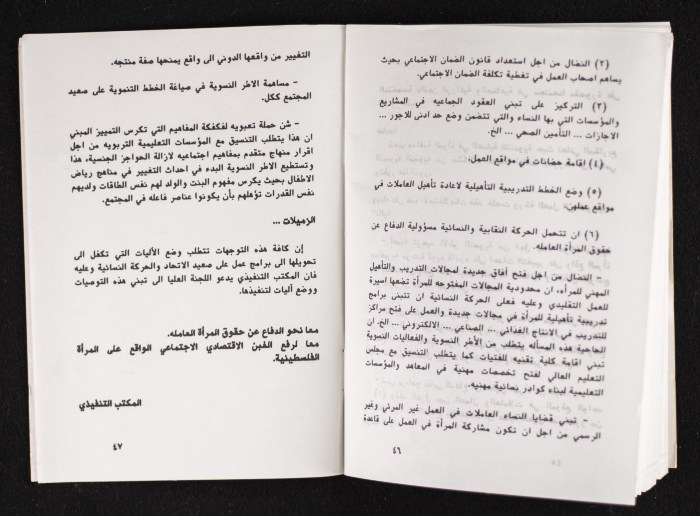 (٢) النضال من اجل استعداد قانون الضمان الاجتماعي بحيث
يساهم اصحاب العمل في تغطية تكلفة الضمان الاجتماعي.
(٣) التركيز على تبني العقود الجماعيه في المشاريع
والمؤسسات التي بها النساء والتي تتضمن وضع حد ادنى للاجور ...
الاجازات ... التأمين الصحي ... الخ.
(٤) اقامة حضانات في مواقع العمل.
(٥) وضع الخطط التدريبية التأهيلية لاعادة تأهيل العاملات في
مواقع عملهن.
(٦) ان تتحمل الحركة النقابية والنسائية مسؤولية الدفاع عن
حقوق المرأة العامله.
– النضال من اجل فتح أفاق جديدة لمجالات التدريب والتأهيل
المهني للمرأه، ان محدودية المجالات المفتوحه للمرأة تضعها اسيرة
للعمل التقليدي وعليه فعلى الحركة النسائية ان تتبنى برامج
تدريبية تأهيلية للمرأة في مجالات جديدة والعمل على فتح مراكز
للتدريب في الانتاج الغذائي ... الصناعي ... الالكتروني ... الخ. ان
الحاجية هذه المسأله يتطلب من الأطر النسوية والفعاليات النسوية
تبني اقامة كلية تقنيه للفتيات كما يتطلب التنسيق مع مجلس
التعليم العالي لفتح تخصصات مهنية في المعاهد والمؤسسات
التعليمية لبناء كوادر نسائية مهنيه.
– تبني قضايا النساء العاملات في العمل غير المرئي وغير
الرسمي من اجل ان تكون مشاركة المرأة في العمل على قاعدة
٤٦
التغيير من واقعها الدوني الى واقع يمنحها صفة منتجه.
– مساهمة الاطر النسوية في صياغة الخطط التنموية على صعيد
المجتمع ككل.
– شن حملة تعبويه لفكفكة المفاهيم التي تكرس التمييز المبني
ان هذا يتطلب التنسيق مع المؤسسات التعليمية التربويه من اجل
اقرار منهاج متقدم بمفاهيم اجتماعيه لازالة الحواجز الجنسية، هذا
وتستطيع الاطر النسوية البدء في احداث التغيير في مناهج رياض
الاطفال بحيث يكرس مفهوم البنت والولد لهم نفس الطاقات ولديهم
نفس القدرات تؤهلهم بأن يكونوا عناصر فاعله في المجتمع.
الزميلات ...
إن كافة هذه التوجهات تتطلب وضع الأليات التي تكفل الى
تحويلها الى برامج عمل على صعيد الاتحاد والحركة النسائية وعليه
فان المكتب التنفيذي يدعو اللجنة العليا الى تبني هذه التوصيات
ووضع أليات لتنفيذها.
معا نحو الدفاع عن حقوق المرأة العامله.
معا لرفع الغبن الاقتصادي الاجتماعي الواقع على المرأة
الفلسطينية.
المكتب التنفيذي
٤٧